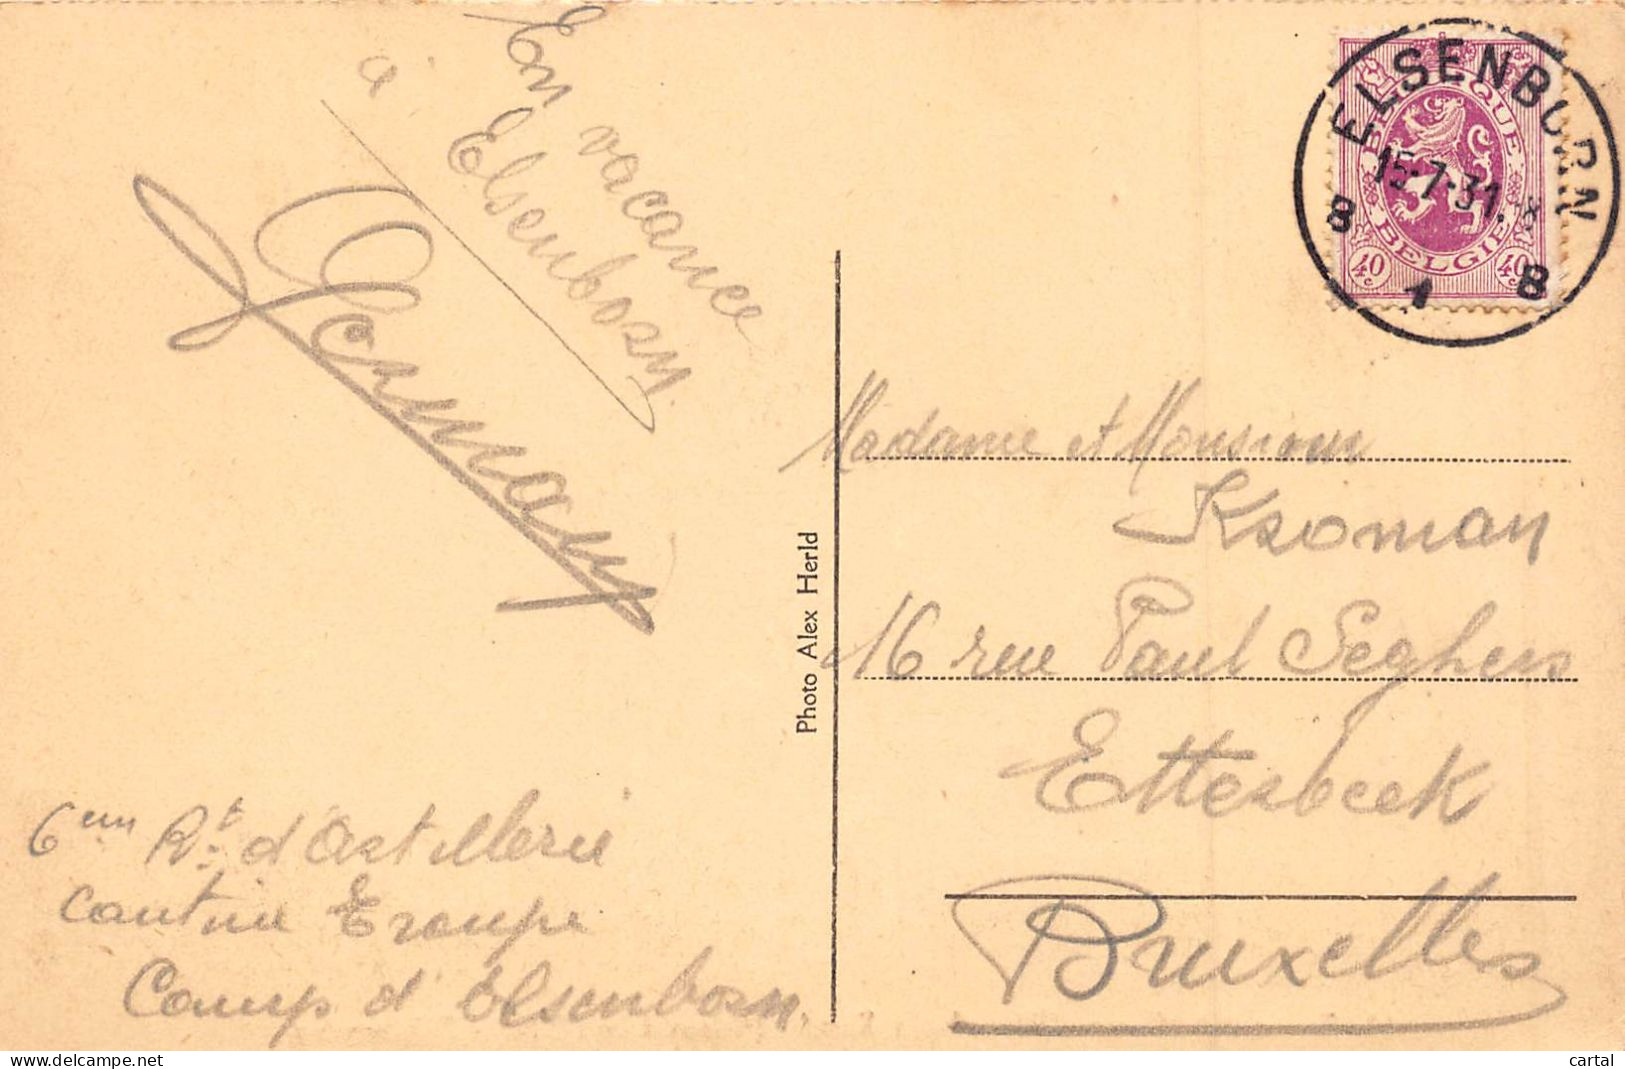 En vacance
à Elsenborn.
Germany
6em Rt. d'Artillerie
Cantine Troupe
Camp d'Elsenborn.
Photo Alex Herld
ELSENBORN
15-7-31
8 1 B
BELGIQUE
BELGIE
40c 40c
Madame et Monsieur
Kroman
16 rue Paul Seghers
Etterbeek
Bruxelles
www.delcampe.net
cartal